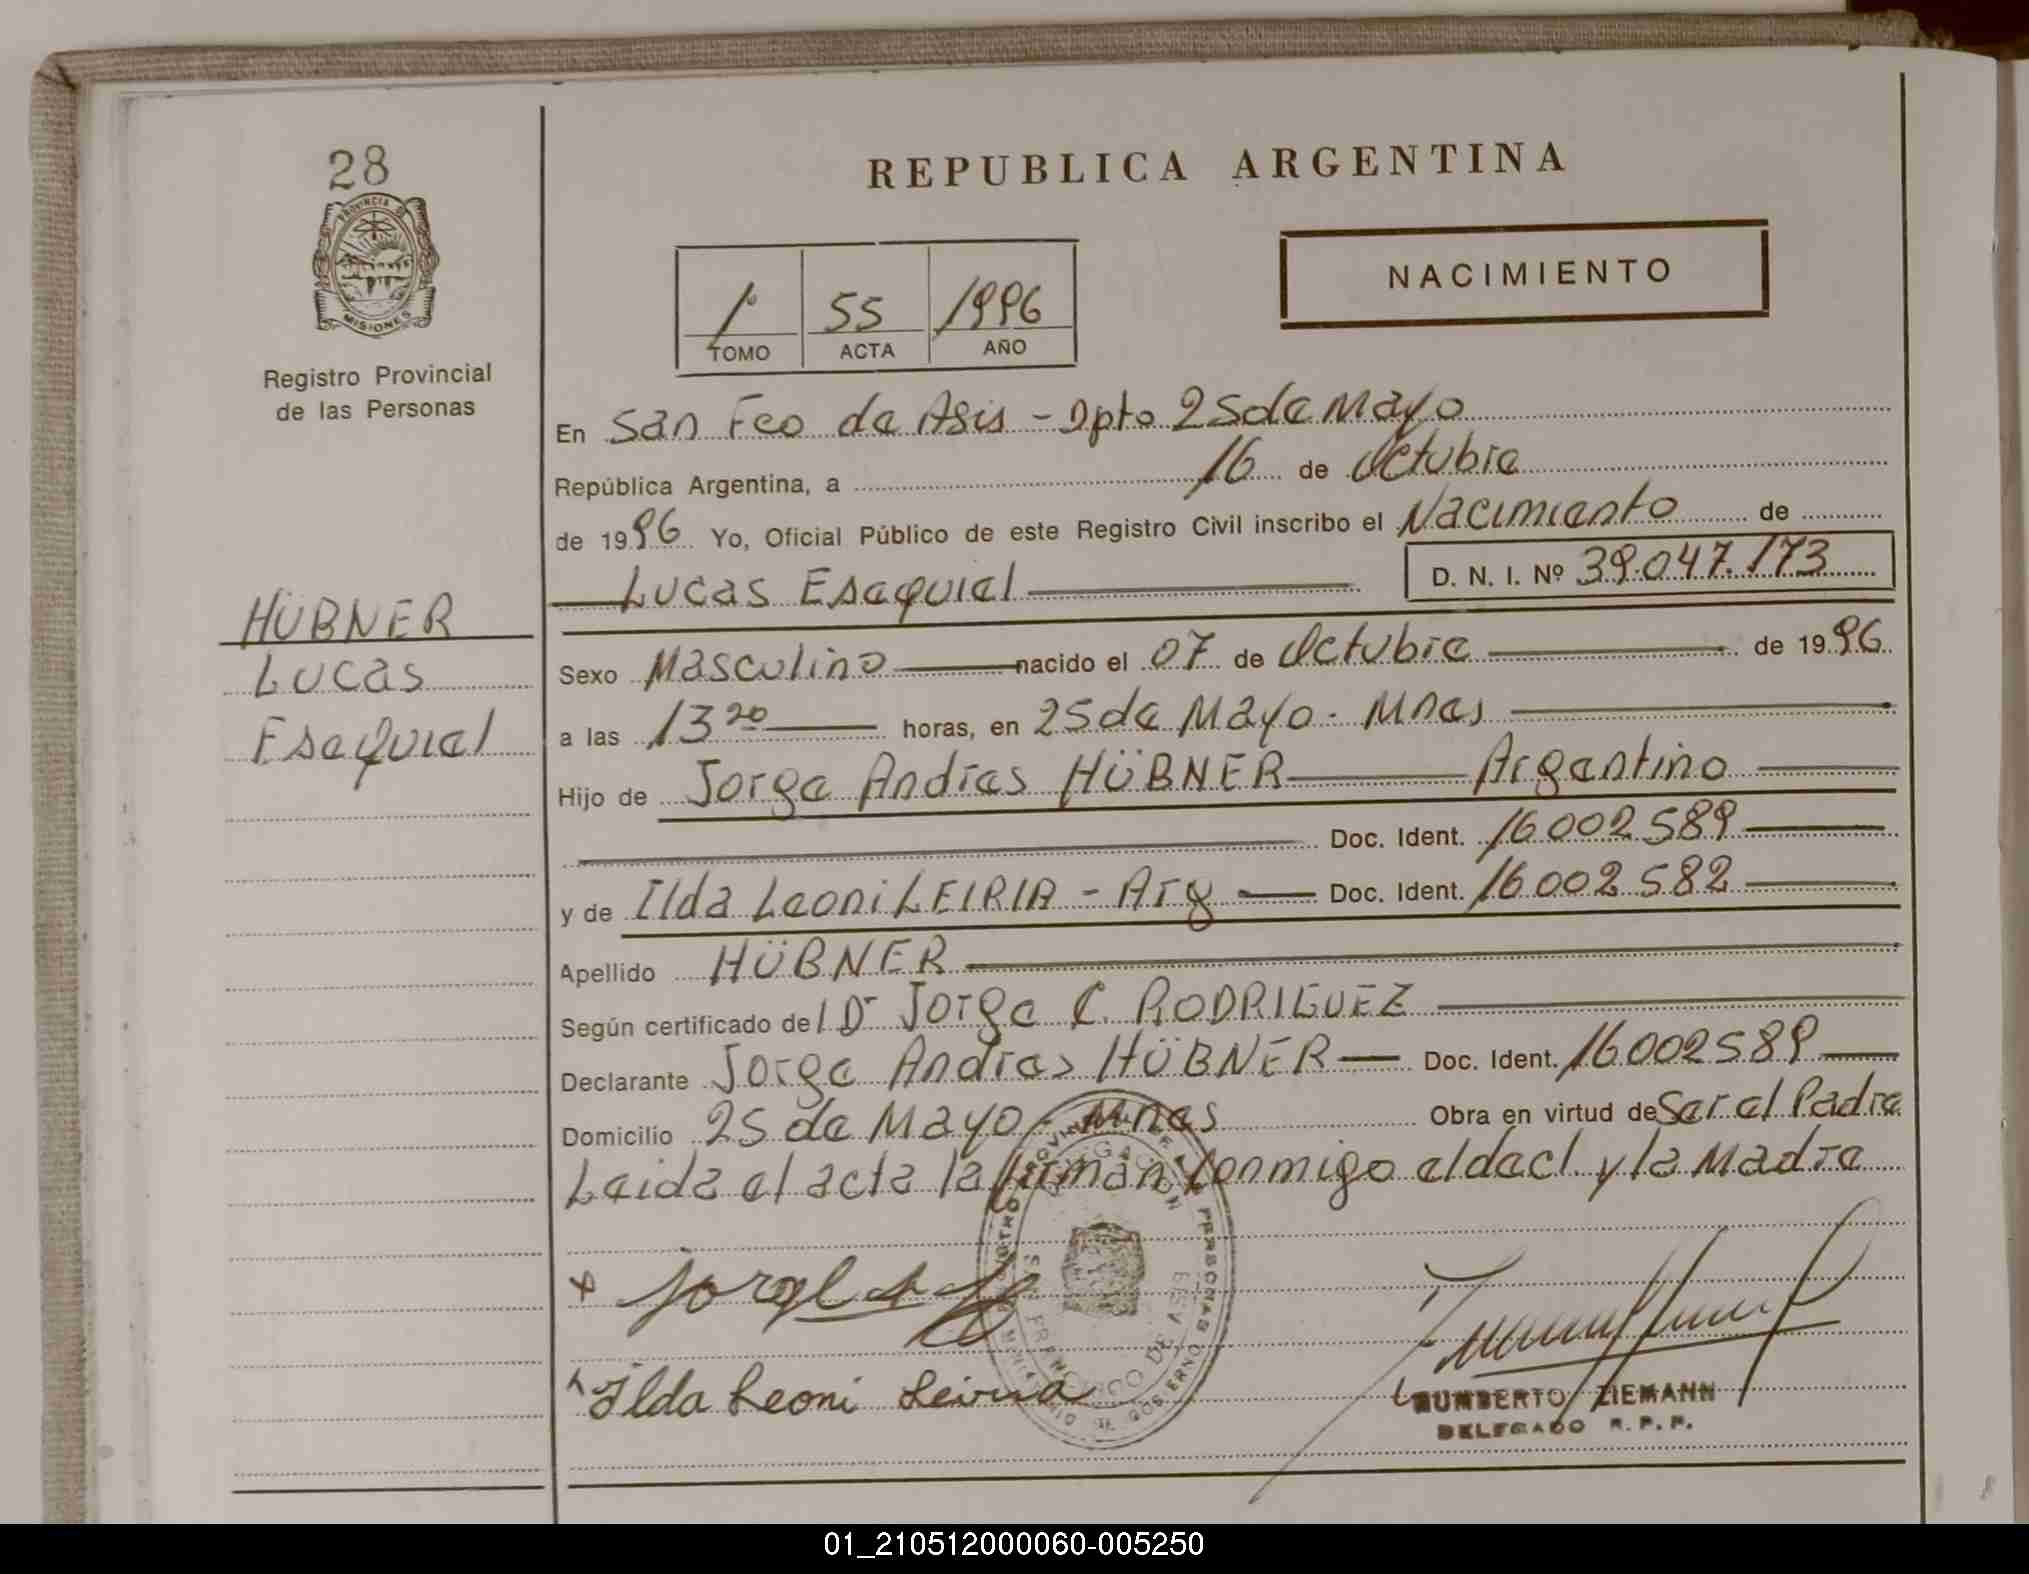 28
PROVINCIA DE
MISIONES
Registro Provincial
de las Personas
HÜBNER
Lucas
Esequiel
REPUBLICA ARGENTINA
1º 55 1996
TOMO ACTA AÑO
NACIMIENTO
En San Fco de Asis - Dpto 25 de Mayo
República Argentina, a 16 de Octubre
de 1996 Yo, Oficial Público de este Registro Civil inscribo el Nacimiento de
Lucas Esequiel D. N. I. Nº 39.047.173
Sexo Masculino nacido el 07 de Octubre de 1996
a las 13 20 horas, en 25 de Mayo - Mnes
Hijo de Jorge Andres HÜBNER Argentino
Doc. Ident. 16002589
y de Ilda Leoni LEIRIA - Arg Doc. Ident. 16002582
Apellido HÜBNER
Según certificado del Dr Jorge C. RODRIGUEZ
Declarante Jorge Andres HÜBNER Doc. Ident. 16002589
Domicilio 25 de Mayo - Mnes Obra en virtud de Ser el Padre
Leida el acta la firman conmigo el decl. y la Madre
Ilda Leoni Leiria
HUMBERTO ZIEMANN
DELEGADO R. P. P.
01_210512000060-005250